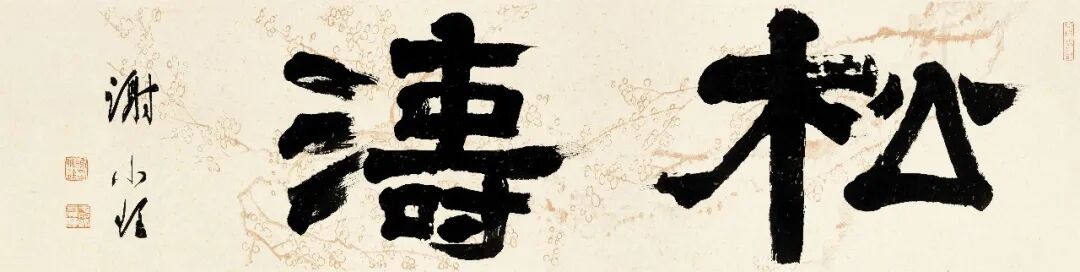 松濤
謝小